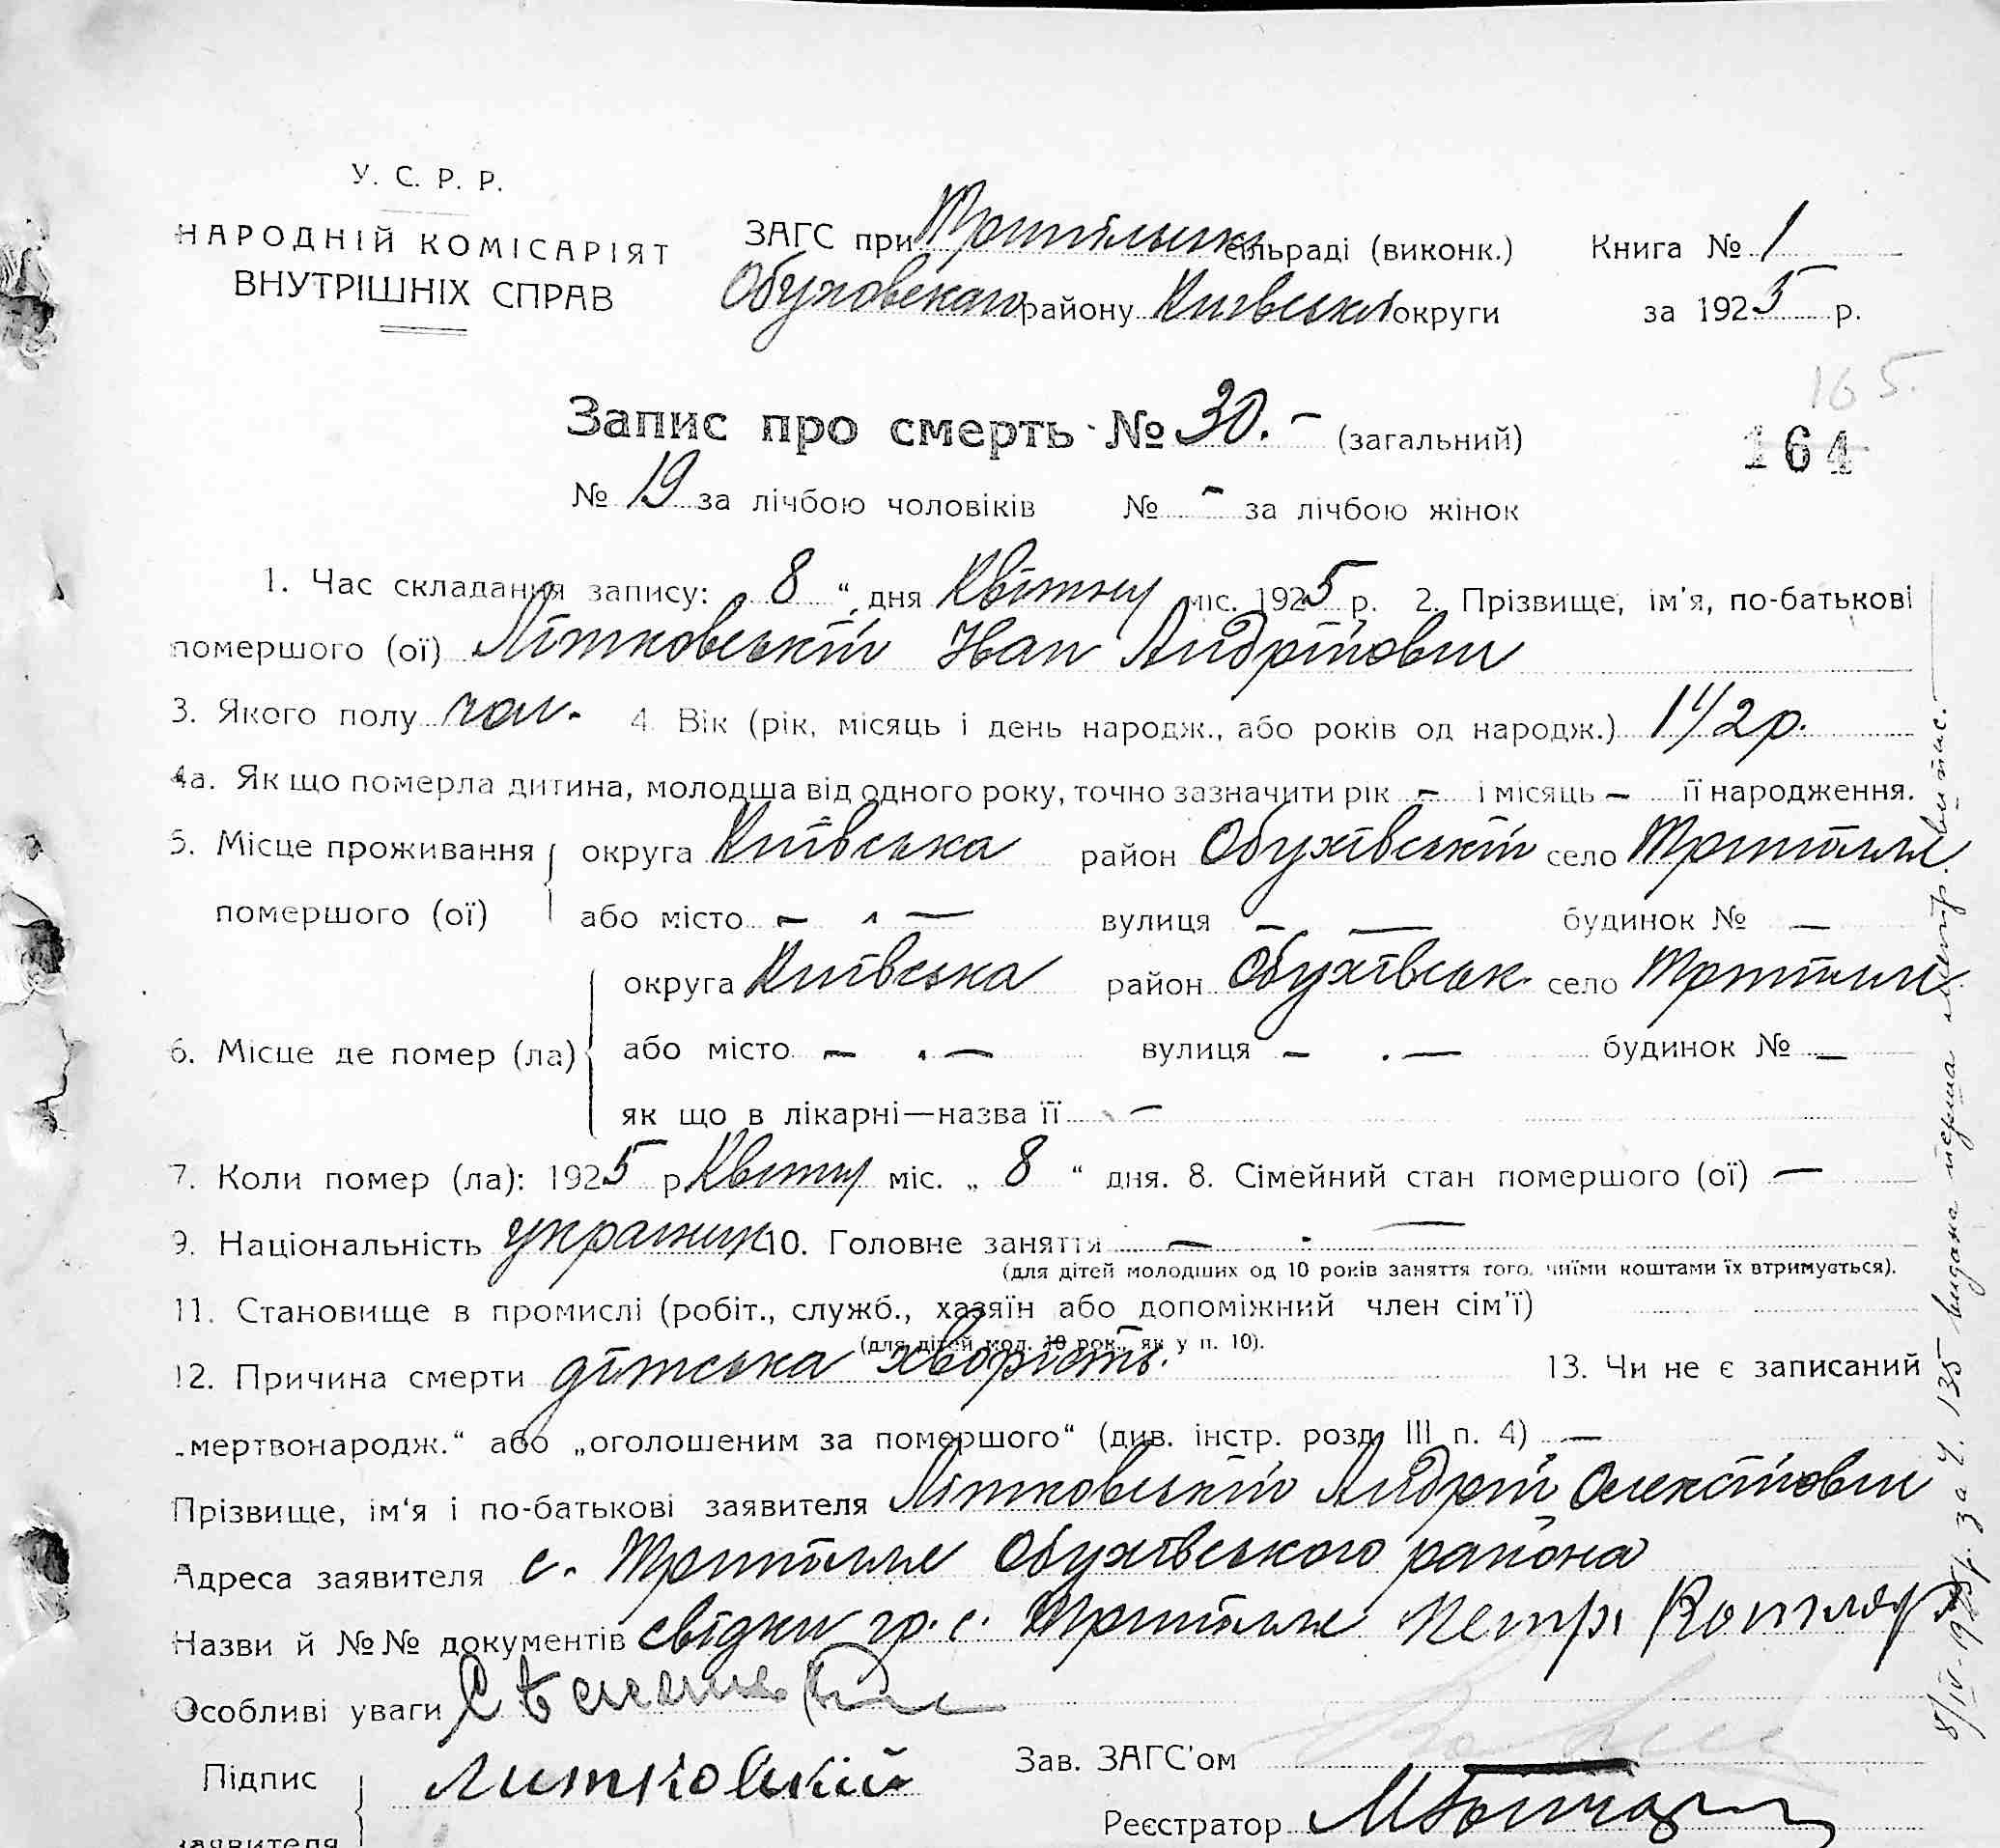 У. С. Р. Р.
НАРОДНІЙ КОМІСАРІЯТ
ВНУТРІШНІХ СПРАВ
ЗАГС при Трипільскі сільраді (виконк.)
Обуховского району Київської округи
Книга № 1
за 1925 р.
165.
164
Запис про смерть № 30. – (загальний)
№ 19 за лічбою чоловіків № – за лічбою жінок
1. Час складання запису: 8 “ дня Квітня міс. 1925 р. 2. Прізвище, ім'я, по-батькові
помершого (ої) Літковській Іван Андрійович
3. Якого полу чол. 4. Вік (рік, місяць і день народж., або років од народж.) 1 1/2 р.
4а. Як що померла дитина, молодша від одного року, точно зазначити рік – і місяць – її народження.
5. Місце проживання помершого (ої) округа Київська район Обухівській село Трипілля
або місто – – вулиця – – будинок № –
6. Місце де помер (ла) округа Київська район Обухівськ. село Трипілля
або місто – – вулиця – – будинок № –
як що в лікарні—назва її –
7. Коли помер (ла): 1925 р Квітня міс. „ 8 “ дня. 8. Сімейний стан помершого (ої) –
9. Національність українец 10. Головне заняття – –
(для дітей молодших од 10 років заняття того, чиїми коштами їх втримується).
11. Становище в промислі (робіт., служб., хазяїн або допоміжний член сім'ї)
(для дітей мол. 10 рок., як у п. 10).
12. Причина смерти дітська хворість. 13. Чи не є записаний
„мертвонародж.“ або „оголошеним за помершого“ (див. інстр. розд. III п. 4) –
Прізвище, ім'я і по-батькові заявителя Літковській Андрій Олексійович
Адреса заявителя с. Трипілля Обухівського района
Назви й №№ документів свідки гр. с. Трипілля Петр Котляр
Особливі уваги
Підпис заявителя Литковский
Зав. ЗАГС'ом
Реєстратор
8/IV-1925р. за ч. 135 видана перша метр. випис.